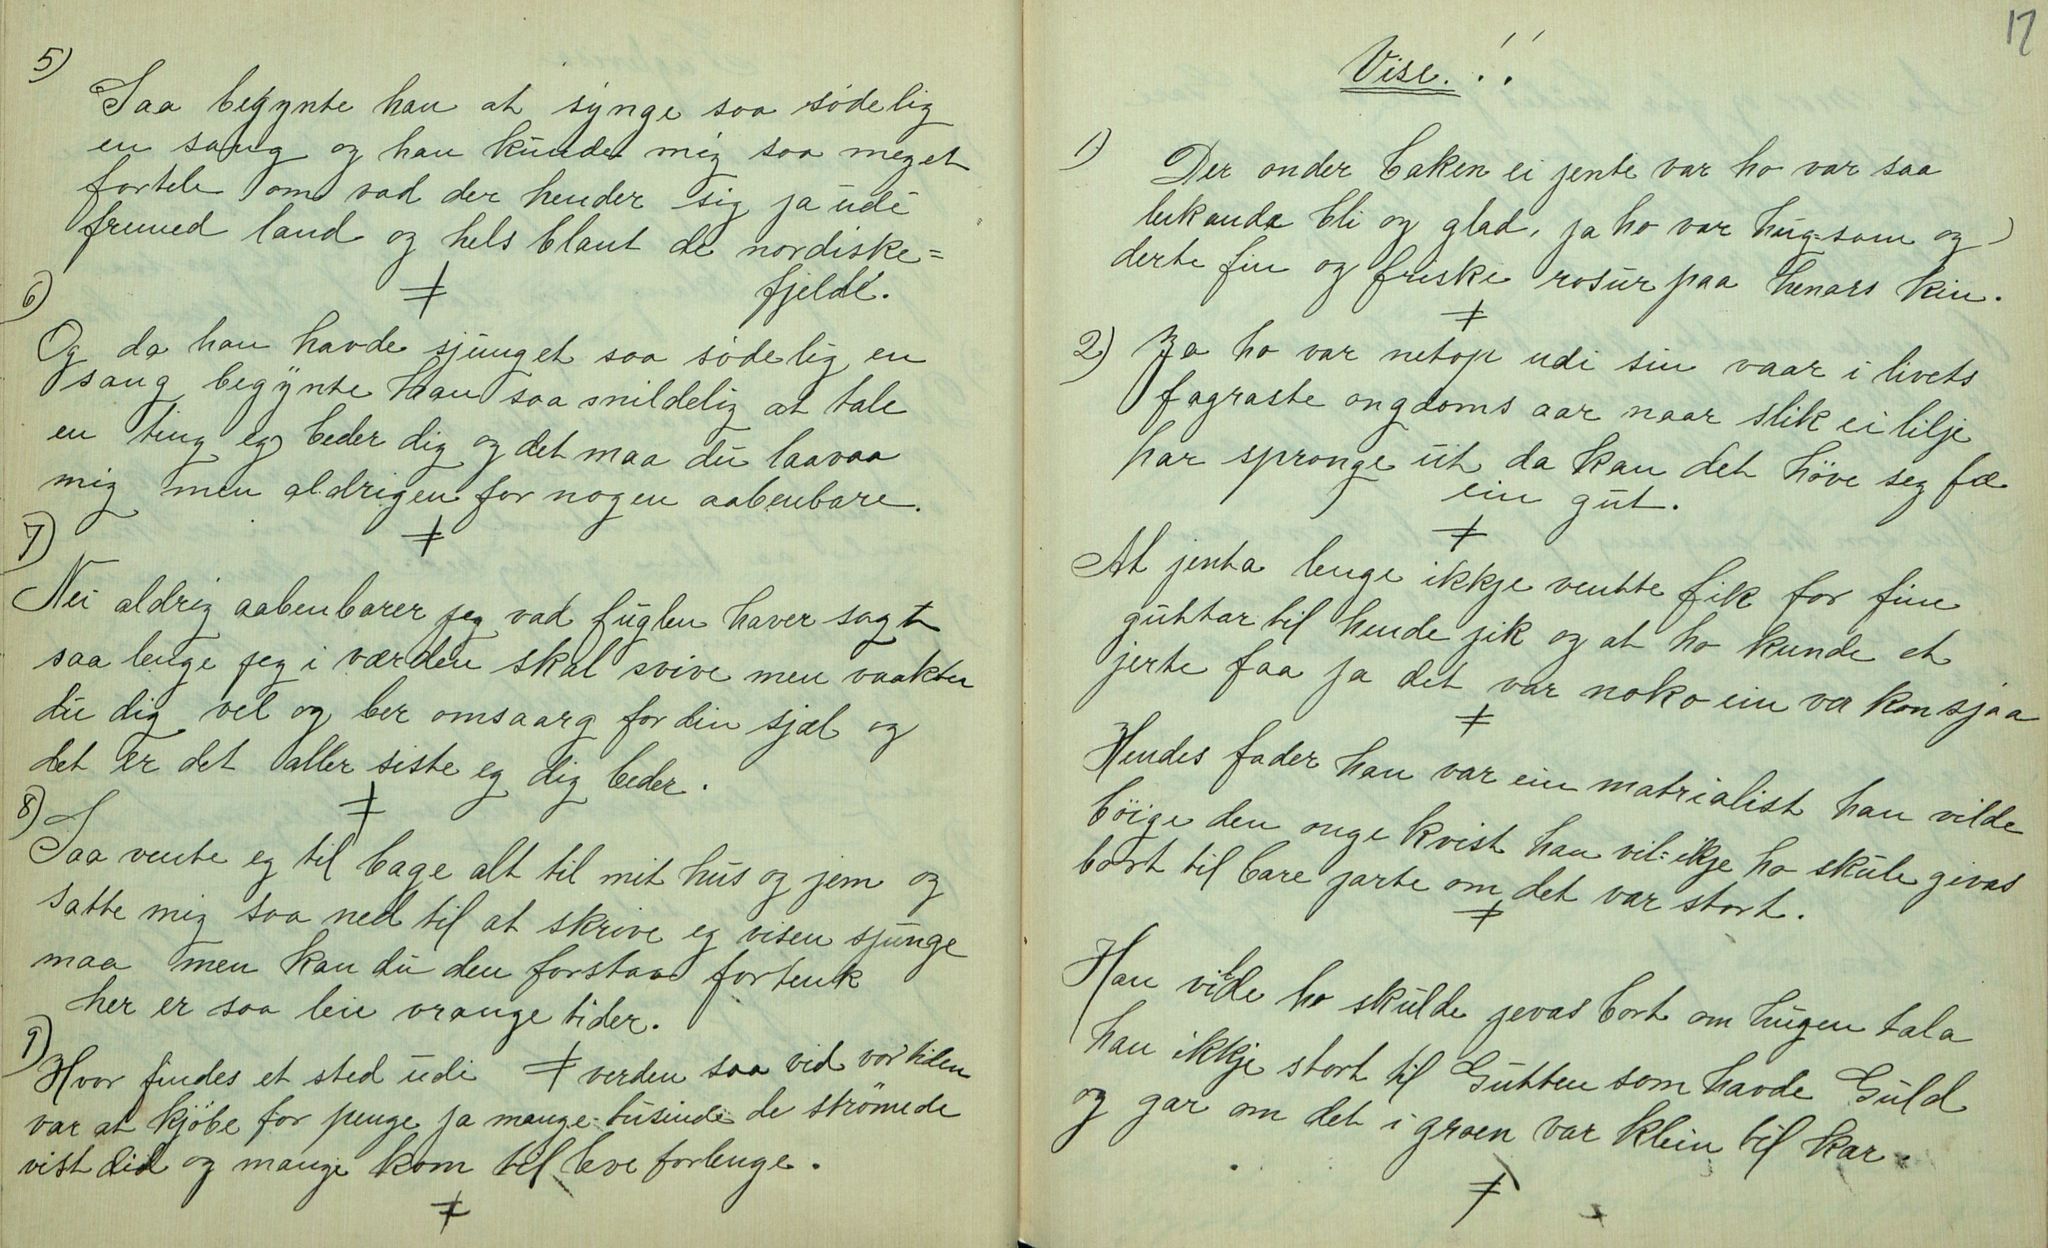 5)
Saa begynte han at synge saa sødelig
en sang og han kunde mig saa meget
fortele om vad der hender sig ja udi
fremed land og hels blant de nordiske=
fjelde.
6)
Og da han havde sjunget saa sødelig en
sang begynte han saa snildelig at tale
en ting eg beder dig og det maa du laavaa
mig men aldrigen for nogen aabenbare.
7)
Nei aldrig aabenbarer jeg vad fuglen haver sagt
saa lenge jeg i værden skal svive men vaakten
du dig vel og ber omsaarg for din sjæl og
det er det aller siste eg dig beder.
8)
Saa vente eg til bage alt til mit hus og jem og
satte mig saa ned til at skrive eg visen sjunge
maa men kan du den forstaa fortenk
her er saa lein vrange tider.
9)
Hvor findes et sted udi verden saa vid vor tiden
var at kjöbe for penge ja mange tusinde de strömede
vist did og mange kom til leve forlenge.
17
Vise. !!
1)
Der onder baken ei jente var ho var saa
leikande bli og glad, ja ho var hug=som og
derte fin og friske rosur paa henars kin.
2) Ja ho var netop udi sin vaar i livets
fagraste ongdoms aar naar slik ei lilje
har spronge ut da kan det höve seg fæ
ein gut.
At jenta lenge ikkje ventte fik for fine
guttar til hende jik og at ho kunde et
jerte faa ja det var noko ein var kon sjaa
Hendes fader han var ein matrialist han vilde
böige den onge kvist han vil=ikje ho skule givas
bort til bare jarte om det var stort.
Han vilde ho skulde jevas bort om hugen tala
han ikkje stort til Gutten som havde Guld
og gar om det i graen var klein til kar.